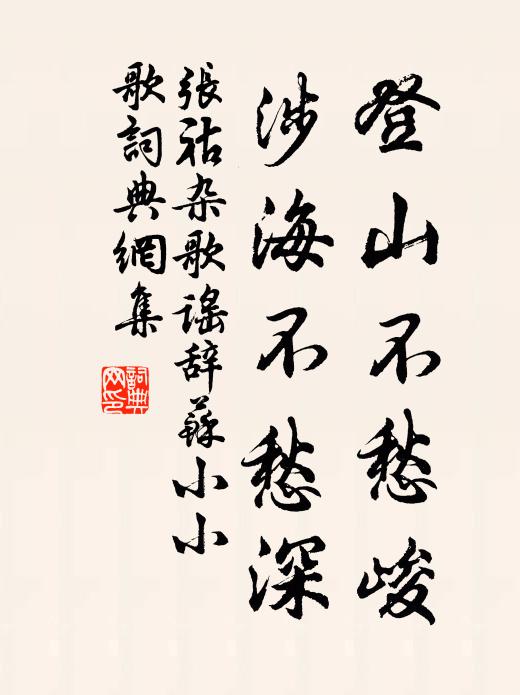 登山不愁峻
涉海不愁深
張祜杂歌谣辞蘇小小
歌詞典網集
詞典
网印